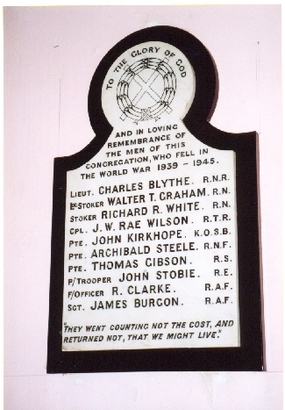 TO THE GLORY OF GOD
AND IN LOVING
REMEMBRANCE OF
THE MEN OF THIS
CONGREGATION, WHO FELL IN
THE WORLD WAR 1939 - 1945.
LIEUT. CHARLES BLYTHE. R.N.R.
Ldg STOKER WALTER T. GRAHAM. R.N.
STOKER RICHARD R. WHITE. R.N.
CPL. J. W. RAE WILSON. R.T.R.
PTE. JOHN KIRKHOPE. K.O.S.B.
PTE. ARCHIBALD STEELE. R.N.F.
PTE. THOMAS GIBSON. R.S.
P/TROOPER JOHN STOBIE. R.E.
F/OFFICER R. CLARKE. R.A.F.
SGT. JAMES BURGON. R.A.F.
"THEY WENT COUNTING NOT THE COST, AND
RETURNED NOT, THAT WE MIGHT LIVE."